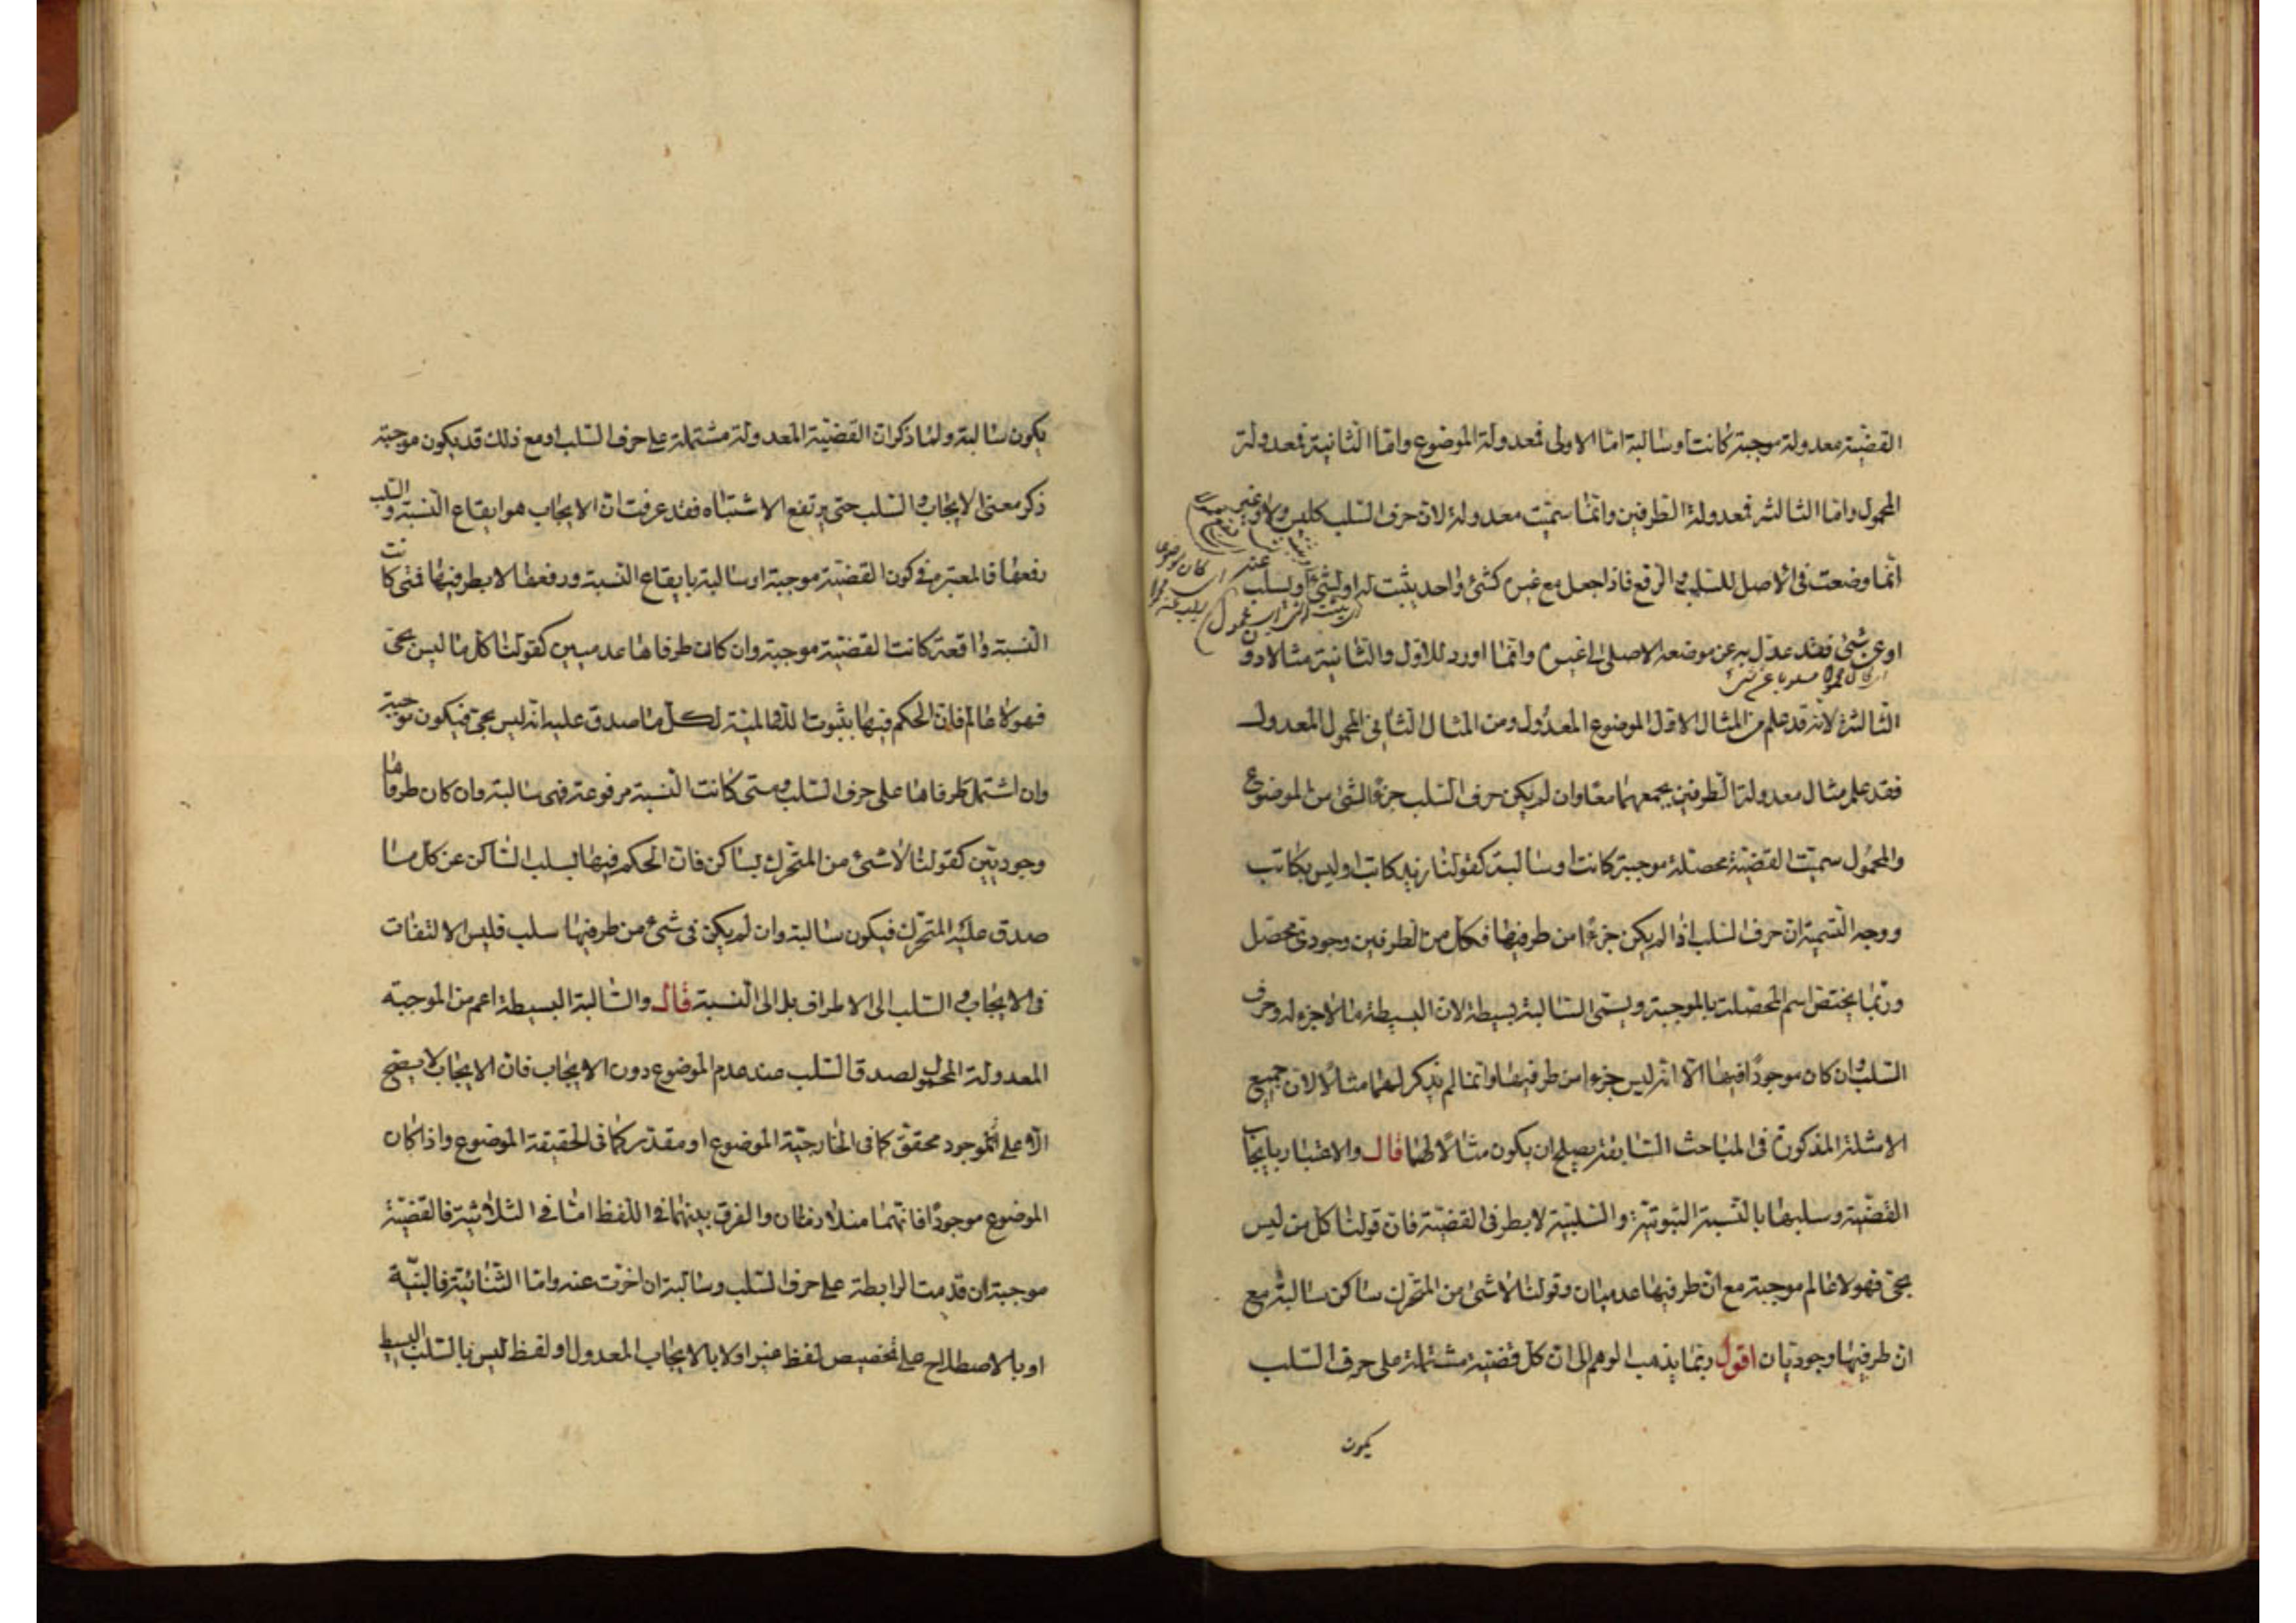 القضية معدولة موجبة كانت او سالبة اما الاولى فمعدولة الموضوع واما الثانية فمعدولة
المحمول واما الثالثة فمعدولة الطرفين وانما سميت معدولة لان حرف السلب كليس ولا وغير
انما وضعت فى الاصل للسلب و الرفع فاذا جعل مع غيره كشئ واحد يثبت له او لشئ او لسلب عنه
او عن شئ فقد عدل به عن موضعه الاصلى الى غيره وانما اورد للاول والثانية مثالا دون
الثالثة لانه قد علم من المثال الاول الموضوع المعدول ومن المثال الثانى المحمول المعدول
فقد علم مثال معدولة الطرفين بجمعهما معا وان لم يكن حرف السلب جزءا لشئ من الموضوع
والمحمول سميت القضية محصلة موجبة كانت او سالبة كقولنا زيد كاتب او ليس بكاتب
ووجه التسمية ان حرف السلب اذا لم يكن جزءا من طرفيها فكل من الطرفين وجودى محصل
وربما يختص اسم المحصلة بالموجبة ويسمى السالبة بسيطة لان البسيطة ما لا جزء له وحرف
السلب وان كان موجودا فيها الا انه ليس جزءا من طرفيها وانما لم يذكر لهما مثالا لان جميع
الامثلة المذكورة فى المباحث السابقة يصلح ان يكون مثالا لهما قال والاعتبار بايجاب
القضية وسلبها بالنسبة الثبوتية والسلبية لا بطرفى القضية فان قولنا كل من ليس
بحى فهو لا عالم موجبة مع ان طرفيها عدميان وقولنا لا شئ من المتحرك بساكن سالبة مع
ان طرفيها وجوديان اقول ربما يذهب الوهم الى ان كل قضية مشتملة على حرف السلب
يكون
يكون سالبة ولما ذكر ان القضية المعدولة مشتملة على حرف السلب او مع ذلك قد يكون موجبة
ذكر معنى الايجاب و السلب حتى يرتفع الاشتباه فقد عرفت ان الايجاب هو ايقاع النسبة والسلب
رفعها فالمعتبر فى كون القضية موجبة او سالبة بايقاع النسبة ورفعها لا بطرفيها فمتى كانت
النسبة واقعة كانت القضية موجبة وان كان طرفاها عدميين كقولنا كل ما ليس بحى
فهو لا عالم فان الحكم فيها بثبوت اللاعالمية لكل ما صدق عليه انه ليس بحى فيكون موجبة
وان اشتمل طرفاها على حرف السلب ومتى كانت النسبة مرفوعة فهى سالبة وان كان طرفاها
وجوديتين كقولنا لا شئ من المتحرك بساكن فان الحكم فيها بسلب الساكن عن كل ما
صدق عليه المتحرك فيكون سالبة وان لم يكن فى شئ من طرفيها سلب فليس الالتفات
فى الايجاب و السلب الى الاطراف بل الى النسبة قال والسالبة البسيطة اعم من الموجبة
المعدولة المحمول لصدق السلب عند عدم الموضوع دون الايجاب فان الايجاب لا يصح
الا على الموجود محقق كما فى الخارجية الموضوع او مقدر كما فى الحقيقة الموضوع واذا كان
الموضوع موجودا فانهما متلازمان والفرق بينهما فى اللفظ اما فى الثلاثية فالقضية
موجبة ان قدمت الرابطة على حرف السلب وسالبة ان اخرت عنه واما الثنائية فبالنية
او بالاصطلاح على تخصيص لفظ غير او لا بالايجاب المعدول او لفظ ليس بالسلب البسيط